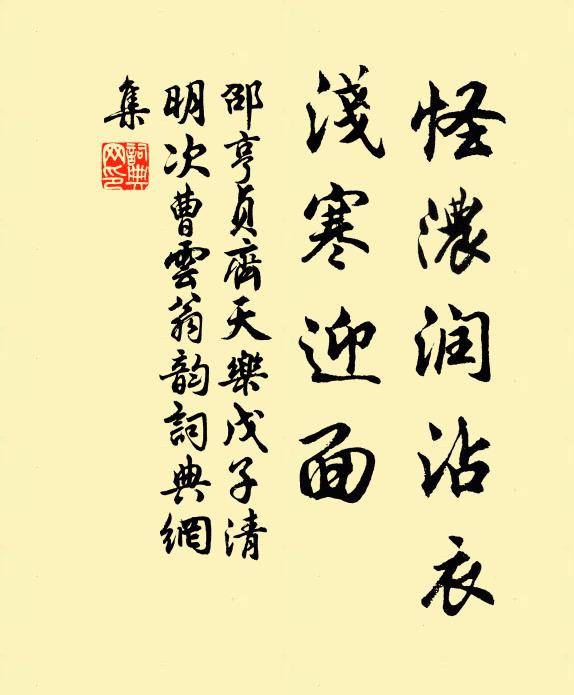 怪濃润沾衣
淺寒迎面
邵亨貞齊天樂戊子清
明次曹雲翁韵詞典網
集
詞典網印